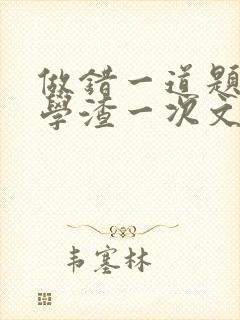 做错一道题
學渣一次文
韦塞林